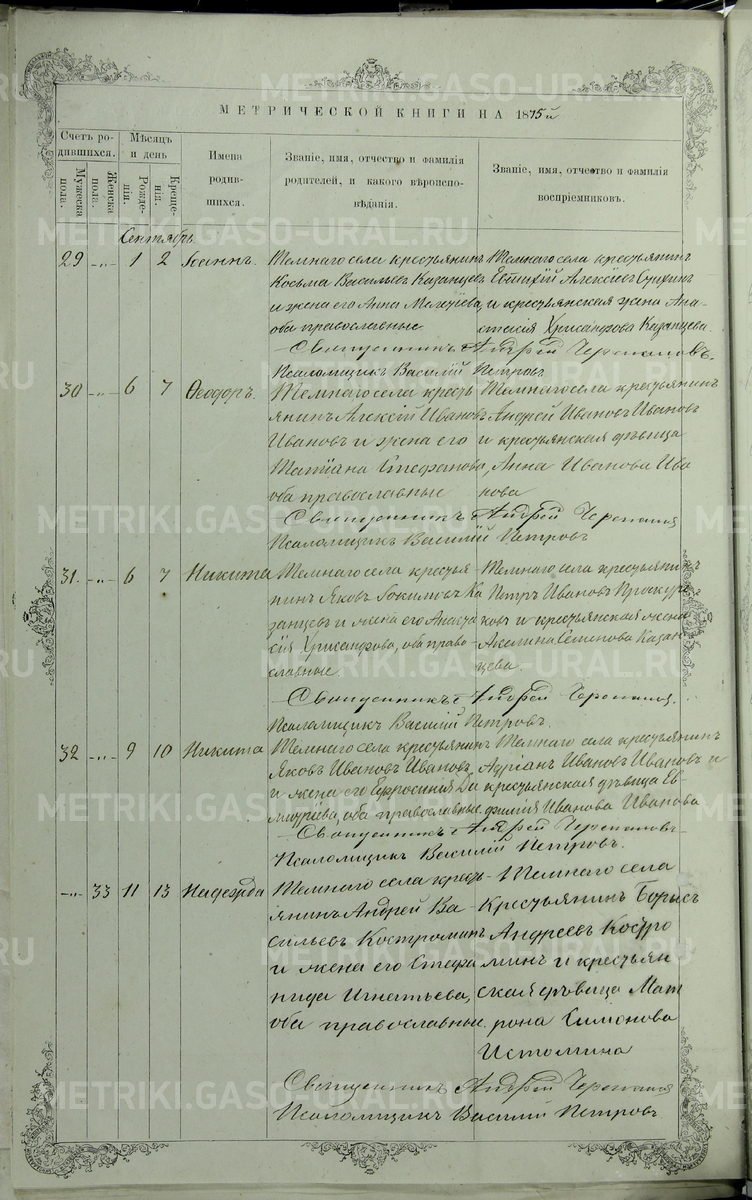 МЕТРИЧЕСКОЙ КНИГИ НА 1875й
Счетъ родившихся.
Мужеска пола.
Женска пола.
Мѣсяцъ и день
Рожденія.
Крещенія.
Имена родившихся.
Званіе, имя, отчество и фамилія родителей, и какого вѣроисповѣданія.
Званіе, имя, отчество и фамилія воспріемниковъ.
Сентябрь
29 -„- 1 2 Іоаннъ.
Темнаго села крестьянинъ
Косьма Васильевъ Казанцевъ
и жена его Анна
оба православные
Темнаго села крестьянинъ
Евтихій Алексіевъ
и крестьянская жена Ана-
стасія Хрисанфова Казанцева.
Священникъ Андрей Черепановъ.
Псаломщикъ Василій Петровъ
30 -„- 6 7 Ѳеодоръ.
Темнаго села кресть
янинъ Алексій Ивановъ
Ивановъ и жена его
Татіана Стефанова,
оба православные
Темнаго села крестьянинъ
Андрей Ивановъ Ивановъ
и крестьянская дѣвица
Анна Иванова Ива
нова
Священникъ Андрей Черепановъ
Псаломщикъ Василій Петровъ
31. -„- 6 7 Никита
Темнаго села крестья
нинъ Яковъ Іоакимовъ Ка
занцевъ и жена его Анаста
сія Хрисанфова, оба право-
славные.
Темнаго села крестьянинъ
Петръ Ивановъ Проскуря
ковъ и крестьянская жена
Акелина Семенова Казан
цева.
Священникъ Андрей Черепановъ.
Псаломщикъ Василій Петровъ.
32 -„- 9 10 Никита
Темнаго села крестьянинъ
Яковъ Ивановъ Ивановъ,
и жена его Ефросинія Ди
митріева, оба православные.
Темнаго села крестьянинъ
Адріанъ Ивановъ Ивановъ и
крестьянская дѣвица Ев
фимія Иванова Иванова
Священникъ Андрей Черепановъ
Псаломщикъ Василій Петровъ.
-„- 33 11 13 Надежда
Темнаго села кресть
янинъ Андрей Ва
сильевъ Костроминъ
и жена его Стефа
нида Игнатьева,
оба православные.
Темнаго села
Крестьянинъ Борисъ
Андреевъ Костро
минъ и крестьян
ская дѣвица Мат
рона Симонова
Истомина
Священникъ Андрей Черепановъ
Псаломщикъ Василій Петровъ
METRIKI.GASO-URAL.RU